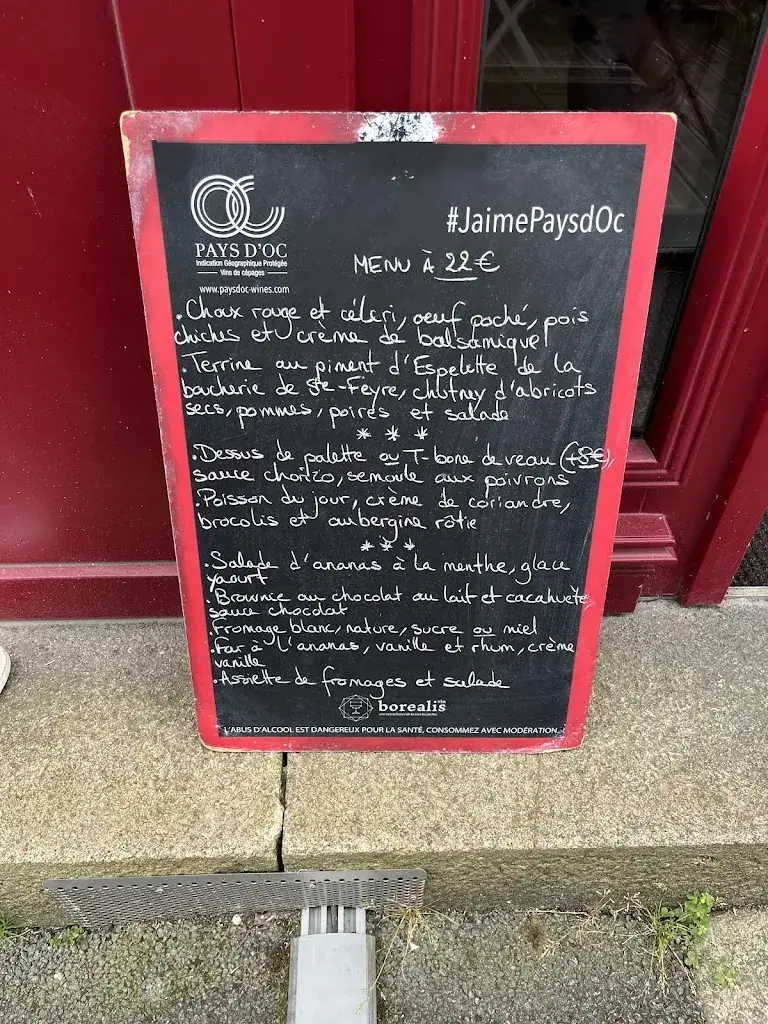 PAYS D'OC
Indication Géographique Protégée
Vins de cépages
www.paysdoc-wines.com
#JaimePaysdOc
MENU À 22€
. Choux rouge et céleri, oeuf poché, pois
chiches et crème de balsamique
. Terrine au piment d'Espelette de la
boucherie de Ste-Feyre, chutney d'abricots
secs, pommes, poires et salade
* * *
. Dessus de palette ou T-bone de veau (+8€),
sauce chorizo, semoule aux poivrons
. Poisson du jour, crème de coriandre,
brocolis et aubergine rôtie
* * *
. Salade d'ananas à la menthe, glace
yaourt
. Brownie au chocolat au lait et cacahuète,
sauce chocolat
. Fromage blanc, nature, sucre ou miel
. Far à l'ananas, vanille et rhum, crème
vanille
. Assiette de fromages et salade
borealis
L'ABUS D'ALCOOL EST DANGEREUX POUR LA SANTÉ, CONSOMMEZ AVEC MODÉRATION.